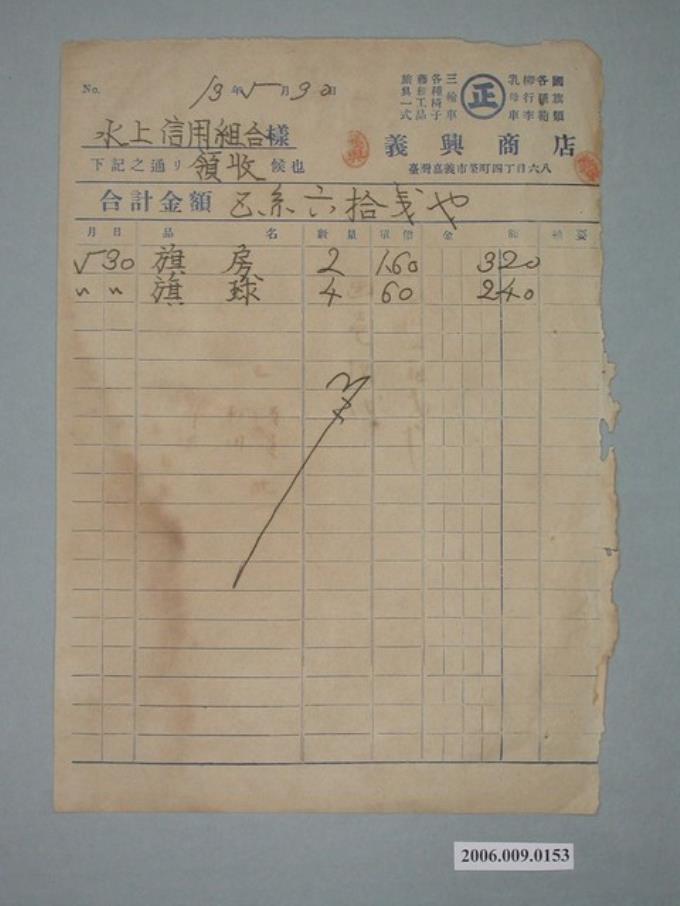 No.
13年5月30日
國旗類
各種鞄
柳行李
乳母車
正
三輪車
各種椅子
藤細工品
旅具一式
水上信用組合樣
義興商店
下記之通リ領收候也
臺灣嘉義市榮町四丁目六八
合計金額 五円六拾戔也
月 日 品名 數量 單價 金額 摘要
5 30 旗房 2 1.60 320
〃 〃 旗球 4 60 240
2006.009.0153